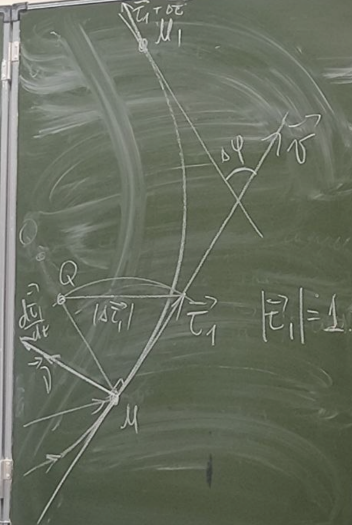 τ⃗₁+Δτ⃗
M₁
Δφ
v⃗
Q
Q
|Δτ⃗₁|
τ⃗₁
|τ⃗₁|=1
dτ⃗₁/dt
ν⃗
M